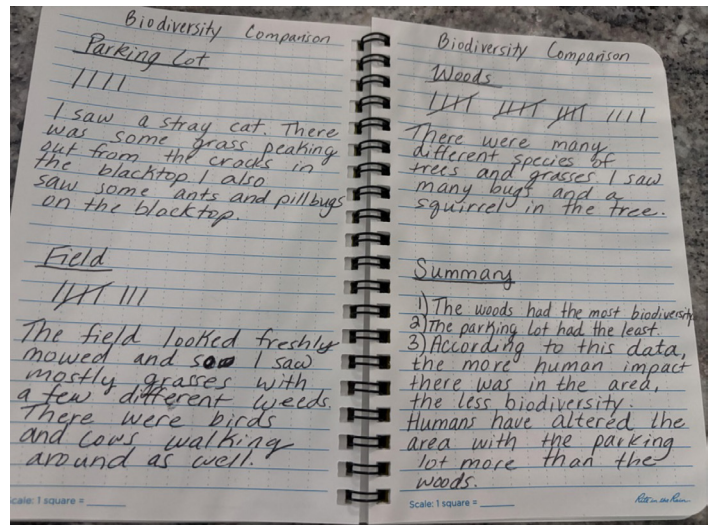 Biodiversity Comparison
Parking Lot
I saw a stray cat. There
was some grass peaking
out from the cracks in
the blacktop. I also
saw some ants and pillbugs
on the blacktop.
Field
The field looked freshly
mowed and so I saw
mostly grasses with
a few different weeds.
There were birds
and cows walking
around as well.
Scale: 1 square =
Biodiversity Comparison
Woods
There were many
different species of
trees and grasses I saw
many bugs and a
squirrel in the tree.
Summary
1) The woods had the most biodiversity
2) The parking lot had the least.
3) According to this data,
the more human impact
there was in the area,
the less biodiversity.
Humans have altered the
area with the parking
lot more than the
woods.
Scale: 1 square =
Rite in the Rain